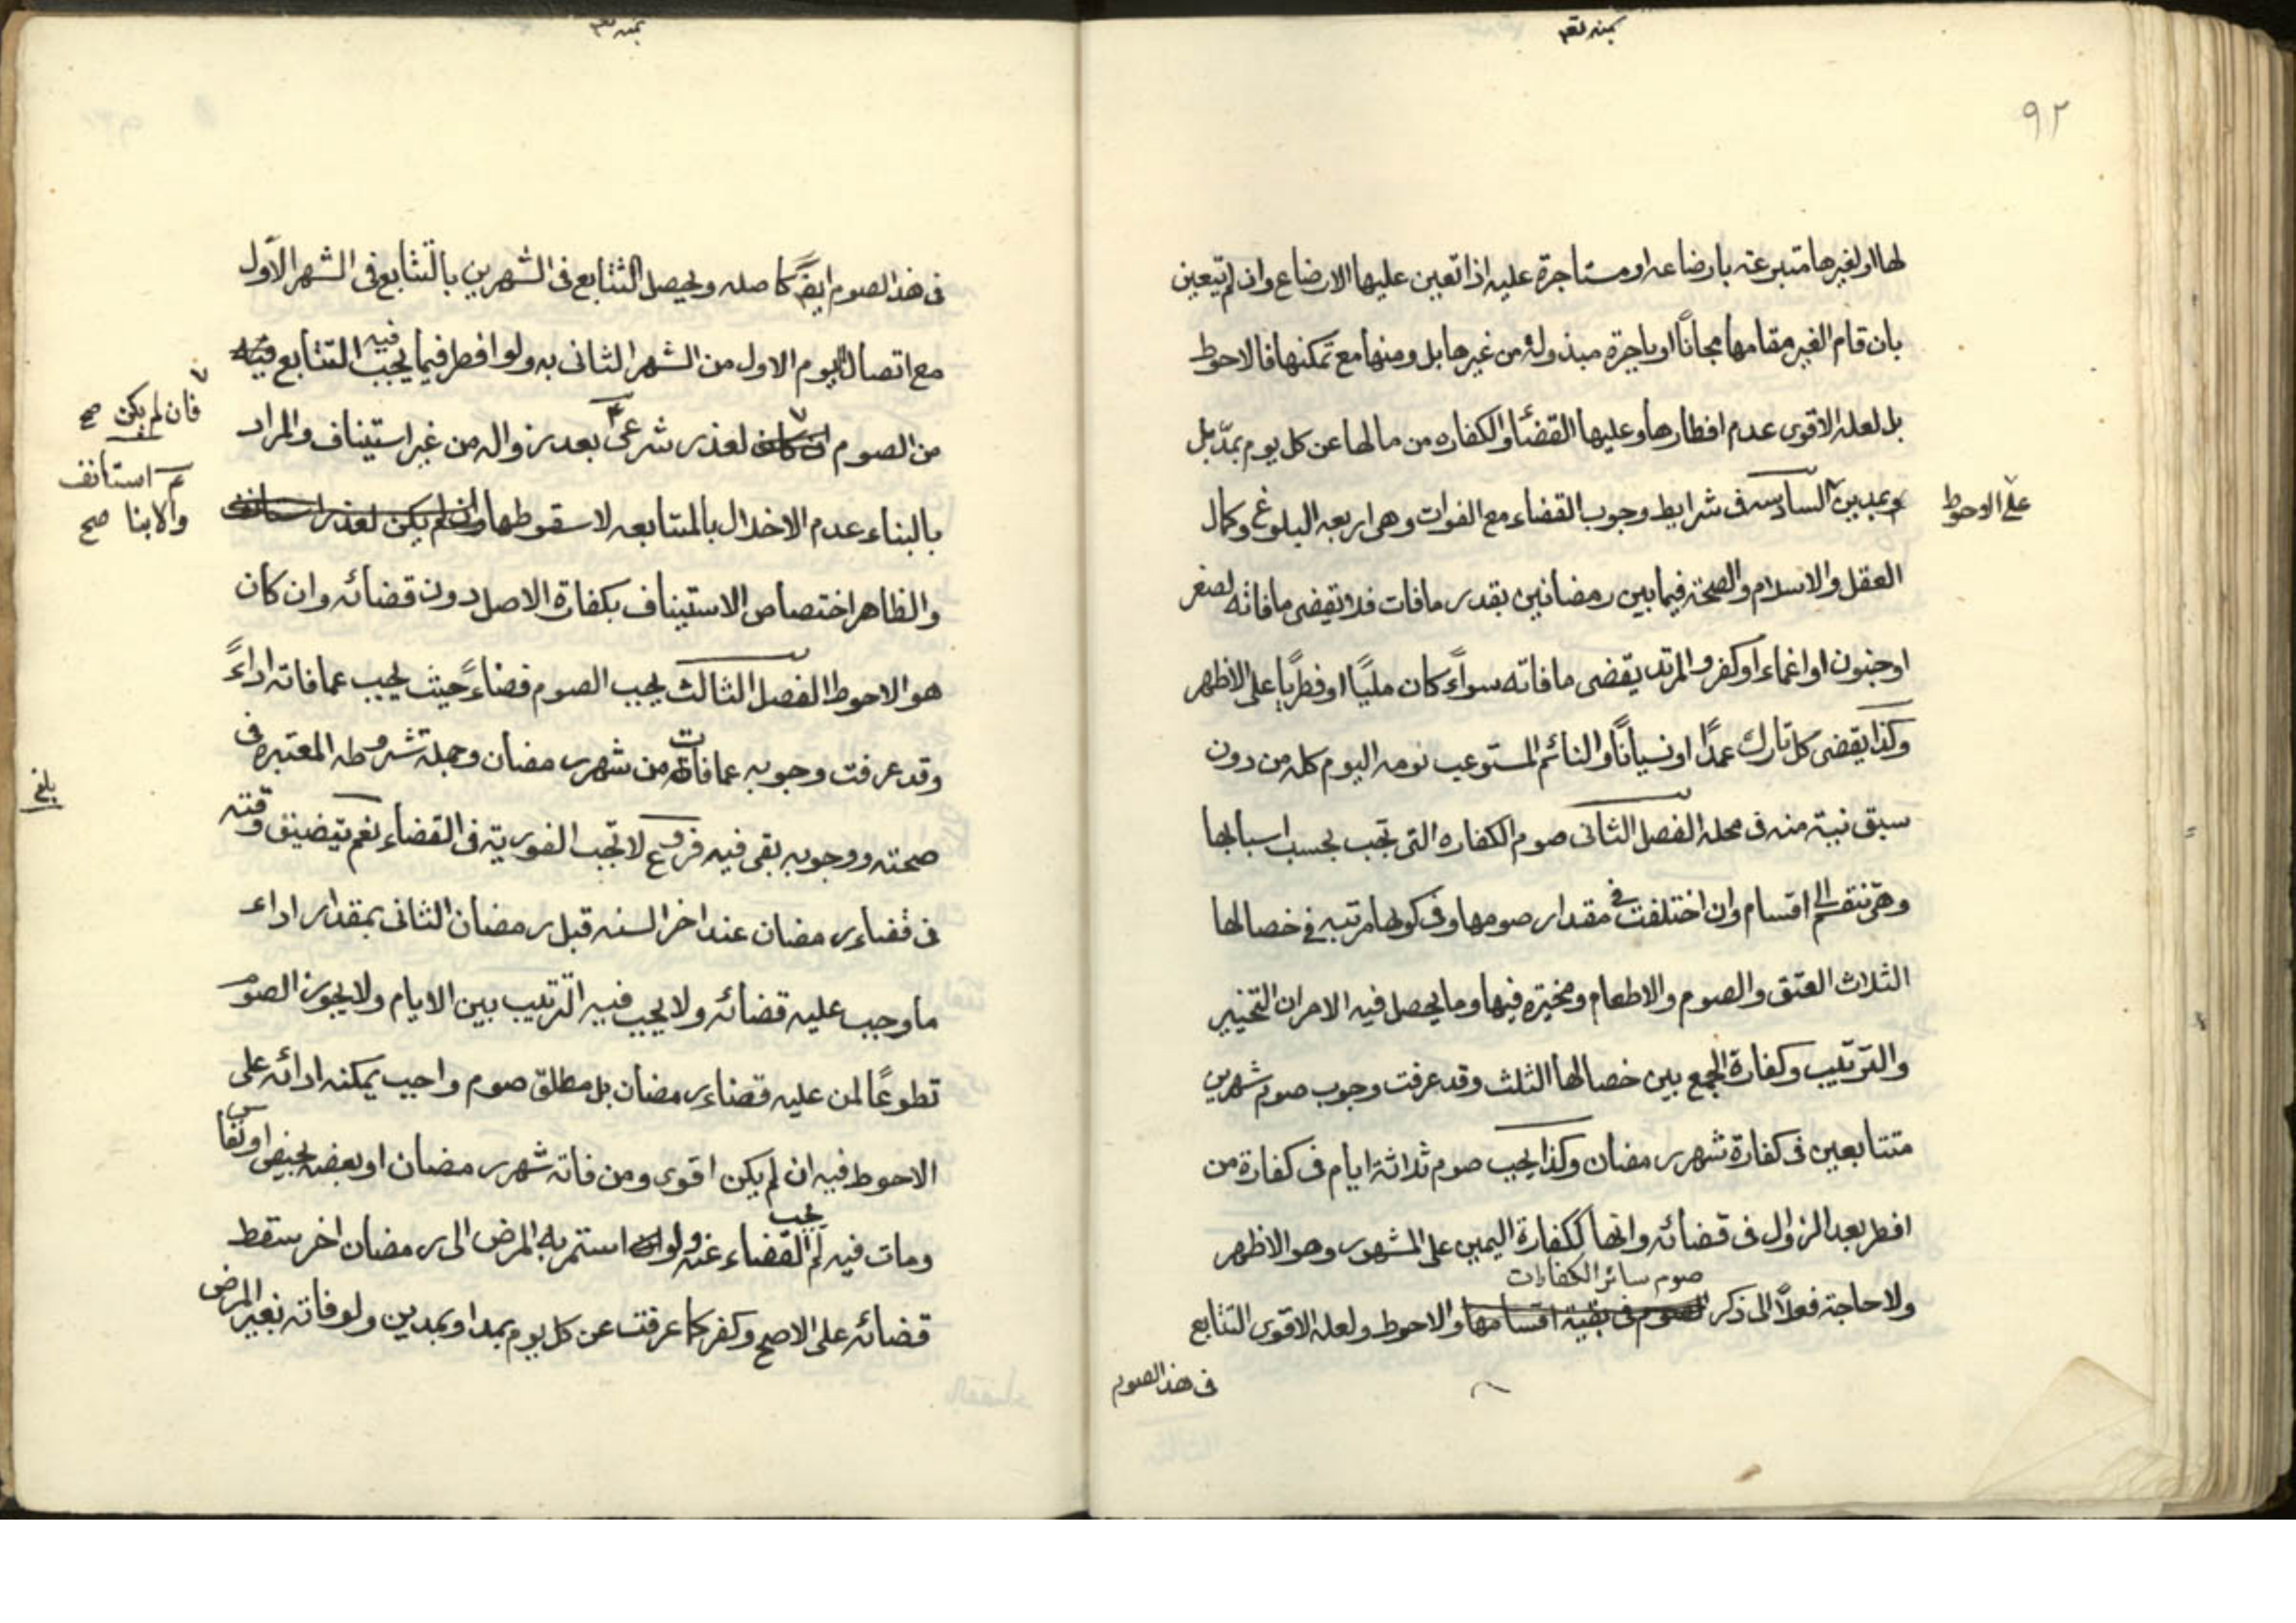 بمنه تعم
٩٢
لها او لغيرها متبرعة بارضاعه او مستاجرة عليه اذا تعين عليها الارضاع وان لم يتعين
بان قام الغير مقامها مجاناً او باجرة مبذولة من غيرها بل ومنها مع تمكنها فالاحوط
بل لعله الاقوى عدم افطارها وعليها القضاء والكفاره من مالها عن كل يوم بمدّ بل
بمدين السادسه فى شرايط وجوب القضاء مع الفوات وهى اربعه البلوغ وكمال
على الاحوط
العقل والاسلام والصحة فيما بين رمضانين بقدر ما فات فلا تقضى ما فاته لصغر
او جنون او اغماء او كفر والمرتد يقضى ما فاته سواءً كان ملياً او فطرياً على الاظهر
وكذا يقضى كل تارك عمداً او نسياناً والنائم المستوعب نومه اليوم كله من دون
سبق نية منه فى محله الفصل الثانى صوم الكفاره التى تجب بحسب اسبابها
وهى تنقسم الى اقسام وان اختلفت فى مقدار صومها وفى كونها مرتبه فى خصالها
الثلاث العتق والصوم والاطعام ومخيّره فيها وما يحصل فيه الامران التخيير
والترتيب وكفارة الجمع بين خصالها الثلث وقد عرفت وجوب صوم شهرين
متتابعين فى كفارة شهر رمضان وكذا يجب صوم ثلاثة ايام فى كفارة من
افطر بعد الزوال فى قضائه وانها ككفارة اليمين على المشهور وهو الاظهر
صوم سائر الكفارات
ولا حاجة فعلاً الى ذكر الصوم فى بقية اقسامها والاحوط ولعله الاقوى التتابع
فى هذا الصوم
بمنه تعم
فى هذا الصوم ايضً كاصله ويحصل التتابع فى الشهرين بالتتابع فى الشهر الاول
مع اتصال اليوم الاول من الشهر الثانى به ولو افطر فيما يجب فيه التتابع فيه
من الصوم لعذر شرعى بعد زواله من غير استيناف والمراد
فان لم يكن صح
استانف
والا بنا صح
بالبناء عدم الاخلال بالمتابعه لا سقوطها وان لم يكن لعذر استانف
والظاهر اختصاص الاستيناف بكفارة الاصل دون قضائه وان كان
هو الاحوط الفصل الثالث يجب الصوم قضاءً حيث يجب عما فاته اداءً
وقد عرفت وجوبه عما فات من شهر رمضان وجملة شروطه المعتبره فى
بلغ
صحته ووجوبه بقى فيه فروع لا تجب الفوريّة فى القضاء نعم يتضيق وقته
فى قضاء رمضان عند اخر السنه قبل رمضان الثانى بمقدار اداء
ما وجب عليه قضائه ولا يجب فيه الترتيب بين الايام ولا يجوز الصوم
تطوعاً لمن عليه قضاء رمضان بل مطلق صوم واجب يمكنه ادائه على
الاحوط فيه ان لم يكن اقوى ومن فاته شهر رمضان او بعضه بحيض او نفاس
ومات فيه لم يجب القضاء عنه ولو استمر به المرض الى رمضان اخر سقط
قضائه على الاصح وكفر كما عرفت عن كل يوم بمد او بمدين ولو فاته بغير المرض